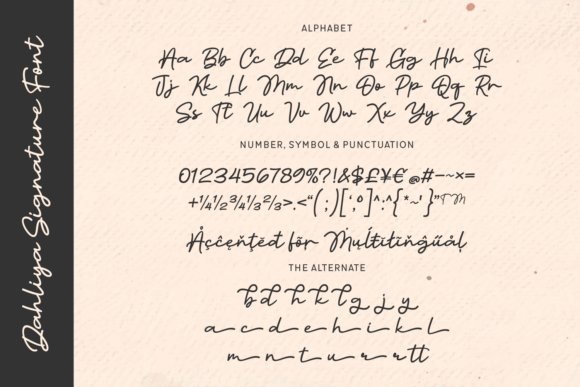 Dahliya Signature Font
ALPHABET
Aa Bb Cc Dd Ee Ff Gg Hh Ii
Jj Kk Ll Mm Nn Oo Pp Qq Rr
Ss Tt Uu Vv Ww Xx Yy Zz
NUMBER, SYMBOL & PUNCTUATION
0123456789%?!&$£¥€@#-~×=
+¼½¾⅓⅔>.<“(;)[‘,°]^:^{*~'}”™
THE ALTERNATE
bd h k l g j y
a c d e h i k l
m n t u r r tt